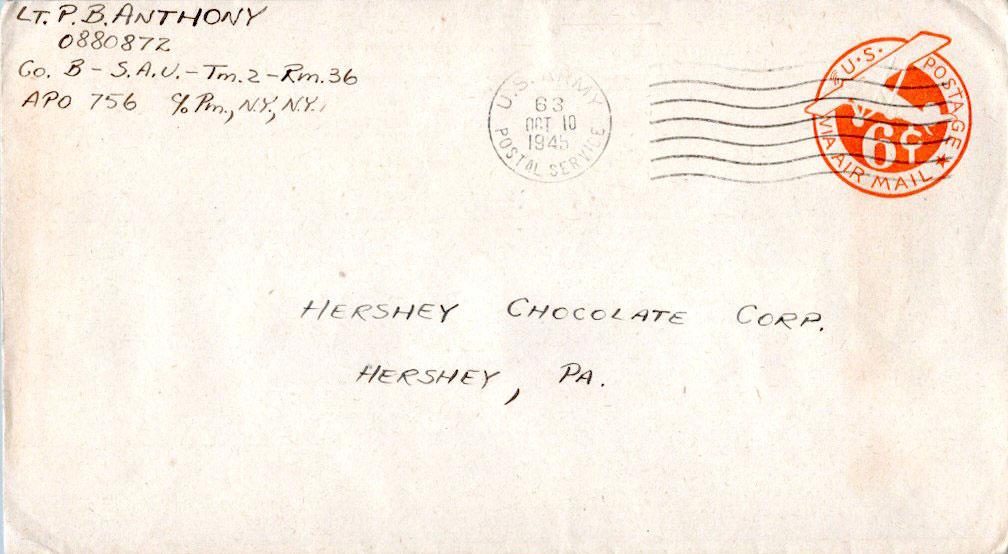 LT. P. B. ANTHONY
0880872
Co. B - S.A.U. - Tm. 2 - Rm. 36
APO 756 c/o Pm., N.Y., N.Y.
U.S. ARMY
63
OCT 10
1945
POSTAL SERVICE
U.S. POSTAGE
6¢
VIA AIR MAIL
HERSHEY CHOCOLATE CORP.
HERSHEY, PA.